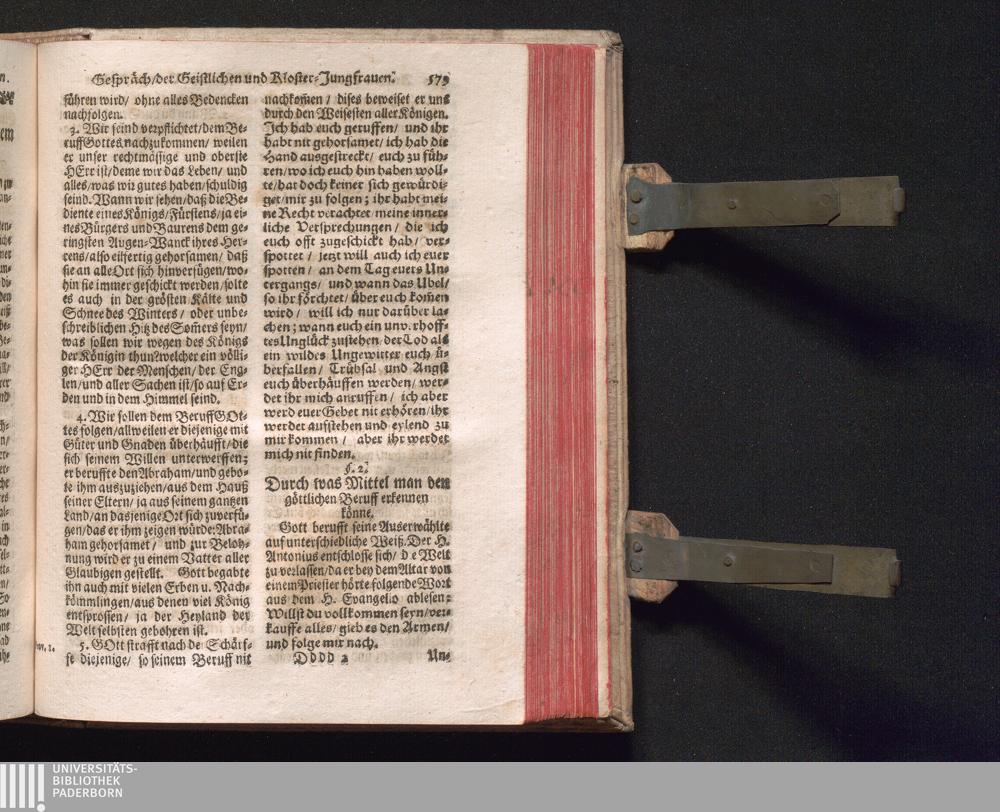 Gespräch/der Geistlichen und Kloster-Jungfrauen. 579
führen wird/ ohne alles Bedencken
nachfolgen.
3. Wir seind verpflichtet/dem Be-
ruff Gottes nachzukommen/ weilen
er unser rechtmässige und oberste
HErr ist/deme wir das Leben/ und
alles/was wir gutes haben/schuldig
seind. Wann wir sehen/daß die Be-
diente eines Königs/Fürstens/ja ei-
nes Bürgers und Baurens dem ge-
ringsten Augen-Wanck ihres Her-
rens/also eilfertig gehorsamen/ daß
sie an alle Ort sich hinverfügen/wo-
hin sie immer geschickt werden/solte
es auch in der grösten Kälte und
Schnee des Winters/ oder unbe-
schreiblichen Hitz des Som̃ers seyn/
was sollen wir wegen des Königs
der Königin thun? welcher ein völli-
ger HErr der Menschen/ der Eng-
len/und aller Sachen ist/so auf Er-
den und in dem Himmel seind.
4. Wir sollen dem Beruff GOt-
tes folgen/allweilen er diejenige mit
Güter und Gnaden überhäufft/die
sich seinem Willen unterwerffen;
er beruffte den Abraham/und gebo-
te ihm auszuziehen/aus dem Hauß
seiner Eltern/ ja aus seinem gantzen
Land/an dasjenige Ort sich zuverfü-
gen/das er ihm zeigen würde: Abra-
ham gehorsamet/ und zur Beloh-
nung wird er zu einem Vatter aller
Glaubigen gestellt. Gott begabte
ihn auch mit vielen Erben u. Nach-
kömmlingen/aus denen viel König
entsprossen/ ja der Heyland der
Welt selbsten gebohren ist.
5. GOtt strafft nach de Schärf-
fe diejenige/ so seinem Beruff nit
nachkom̃en/ dises beweiset er uns
durch den Weisesten aller Königen.
Ich hab euch geruffen/ und ihr
habt nit gehorsamet/ ich hab die
Hand ausgestreckt/ euch zu füh-
ren/ wo ich euch hin haben woll-
te/hat doch keiner sich gewürdi-
get/mir zu folgen; ihr habt mei-
ne Recht verachtet/meine inner-
liche Versprechungen/ die ich
euch offt zugeschickt hab/ ver-
spottet/ jetzt will auch ich euer
spotten/ an dem Tag euers Un-
tergangs/ und wann das Ubel/
so ihr förchtet/ über euch kom̃en
wird/ will ich nur darüber la-
chen; wann euch ein unverhoff-
tes Unglück zustehen/ der Tod als
ein wildes Ungewitter euch ü-
berfallen/ Trübsal und Angst
euch überhäuffen werden/ wer-
det ihr mich anruffen/ ich aber
werd euer Gebet nit erhören/ihr
werdet aufstehen und eylend zu
mir kommen/ aber ihr werdet
mich nit finden.
§. 2.
Durch was Mittel man den
göttlichen Beruff erkennen
könne.
Gott berufft seine Auserwählte
auf unterschiedliche Weiß. Der H.
Antonius entschlosse sich/ die Welt
zu verlassen/da er bey dem Altar von
einem Priester hörte folgende Wort
aus dem H. Evangelio ablesen:
Willst du vollkommen seyn/ver-
kauffe alles/ gieb es den Armen/
und folge mir nach.
Dddd 2 Un-
UNIVERSITÄTS-
BIBLIOTHEK
PADERBORN